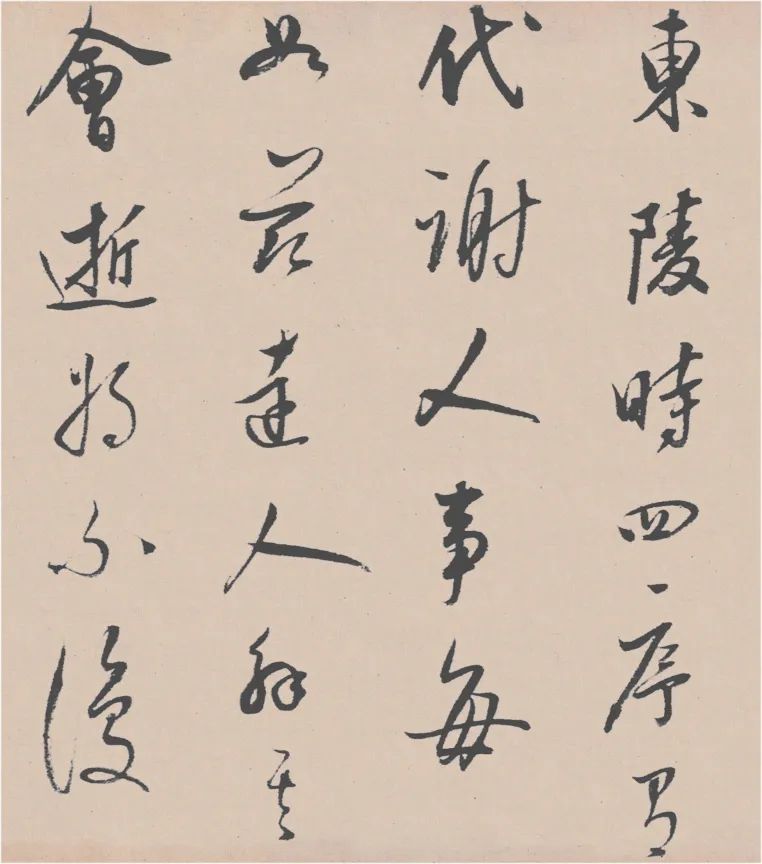 東陵時四序
代謝人事每
如茲達人解其
會逝將不復